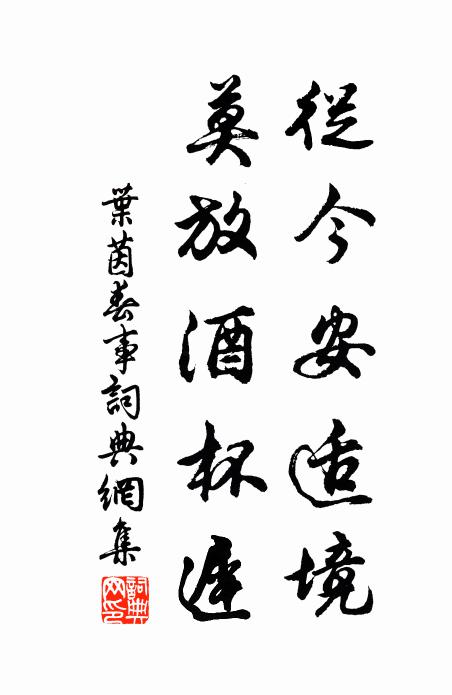 從今安适境
莫放酒杯遲
葉茵春事詞典網集
詞典網印